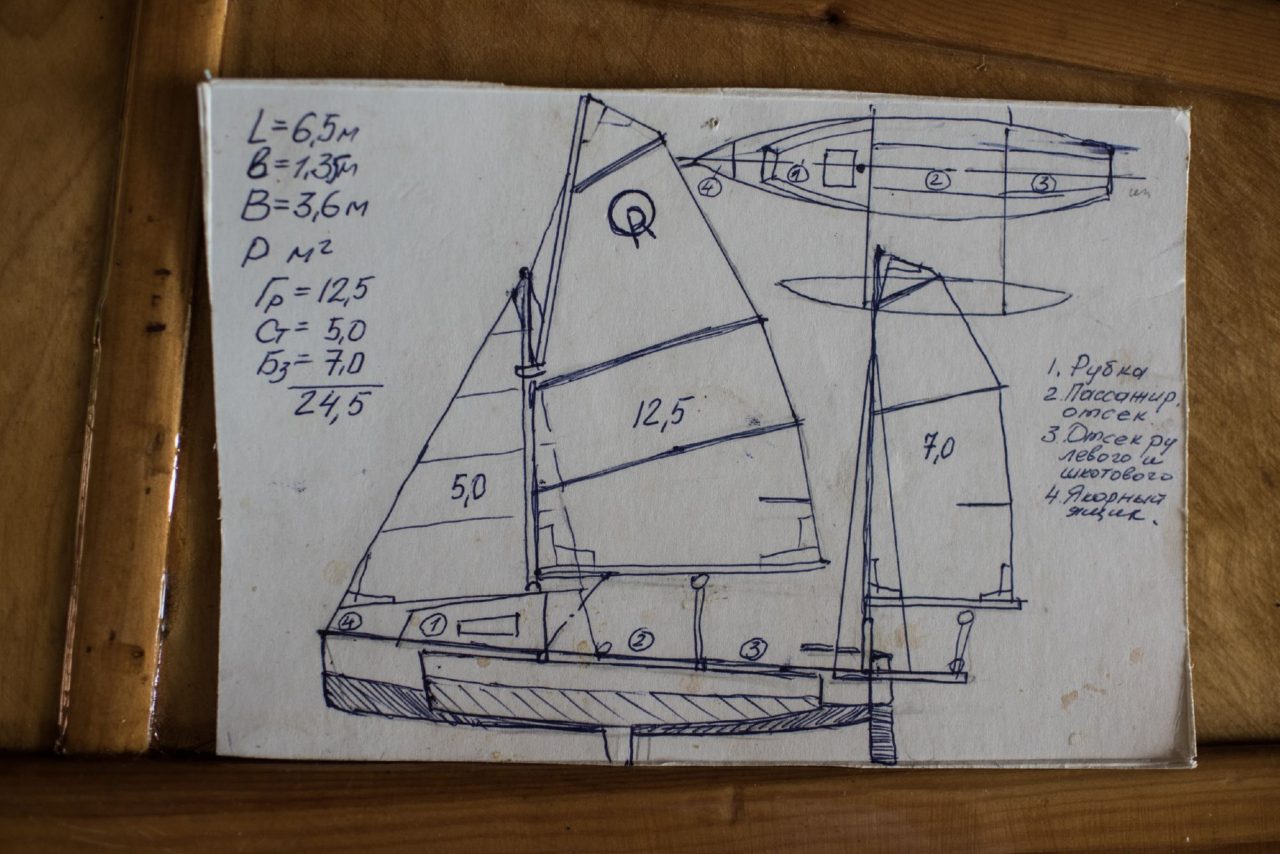 L=6,5м
в=1,35м
В=3,6м
Р м²
Гр=12,5
Ст=5,0
Бз=7,0
24,5
R
12,5
5,0
7,0
4
1
2
3
4
1
2
3
1. Рубка
2. Пассажир.
отсек
3. Отсек ру
левого и
шкотового
4. Якорный
ящик.